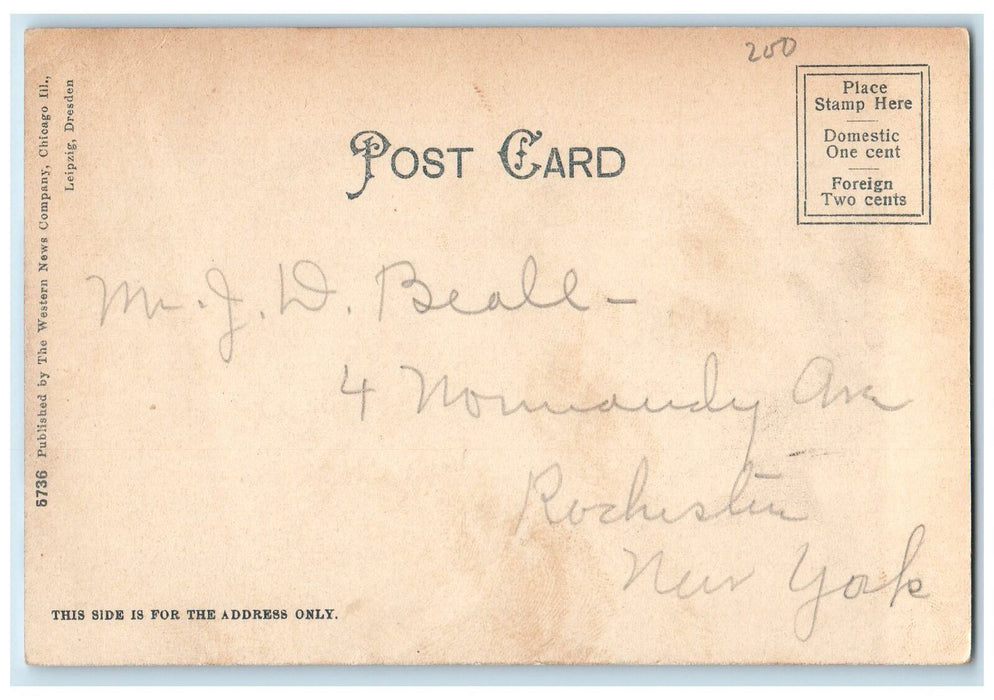 200
Place
Stamp Here
Domestic
One cent
Foreign
Two cents
POST CARD
5736 Published by The Western News Company, Chicago Ill.,
Leipzig, Dresden
Mr. J. W. Beall -
4 Normandy Ave
Rochester
New York
THIS SIDE IS FOR THE ADDRESS ONLY.